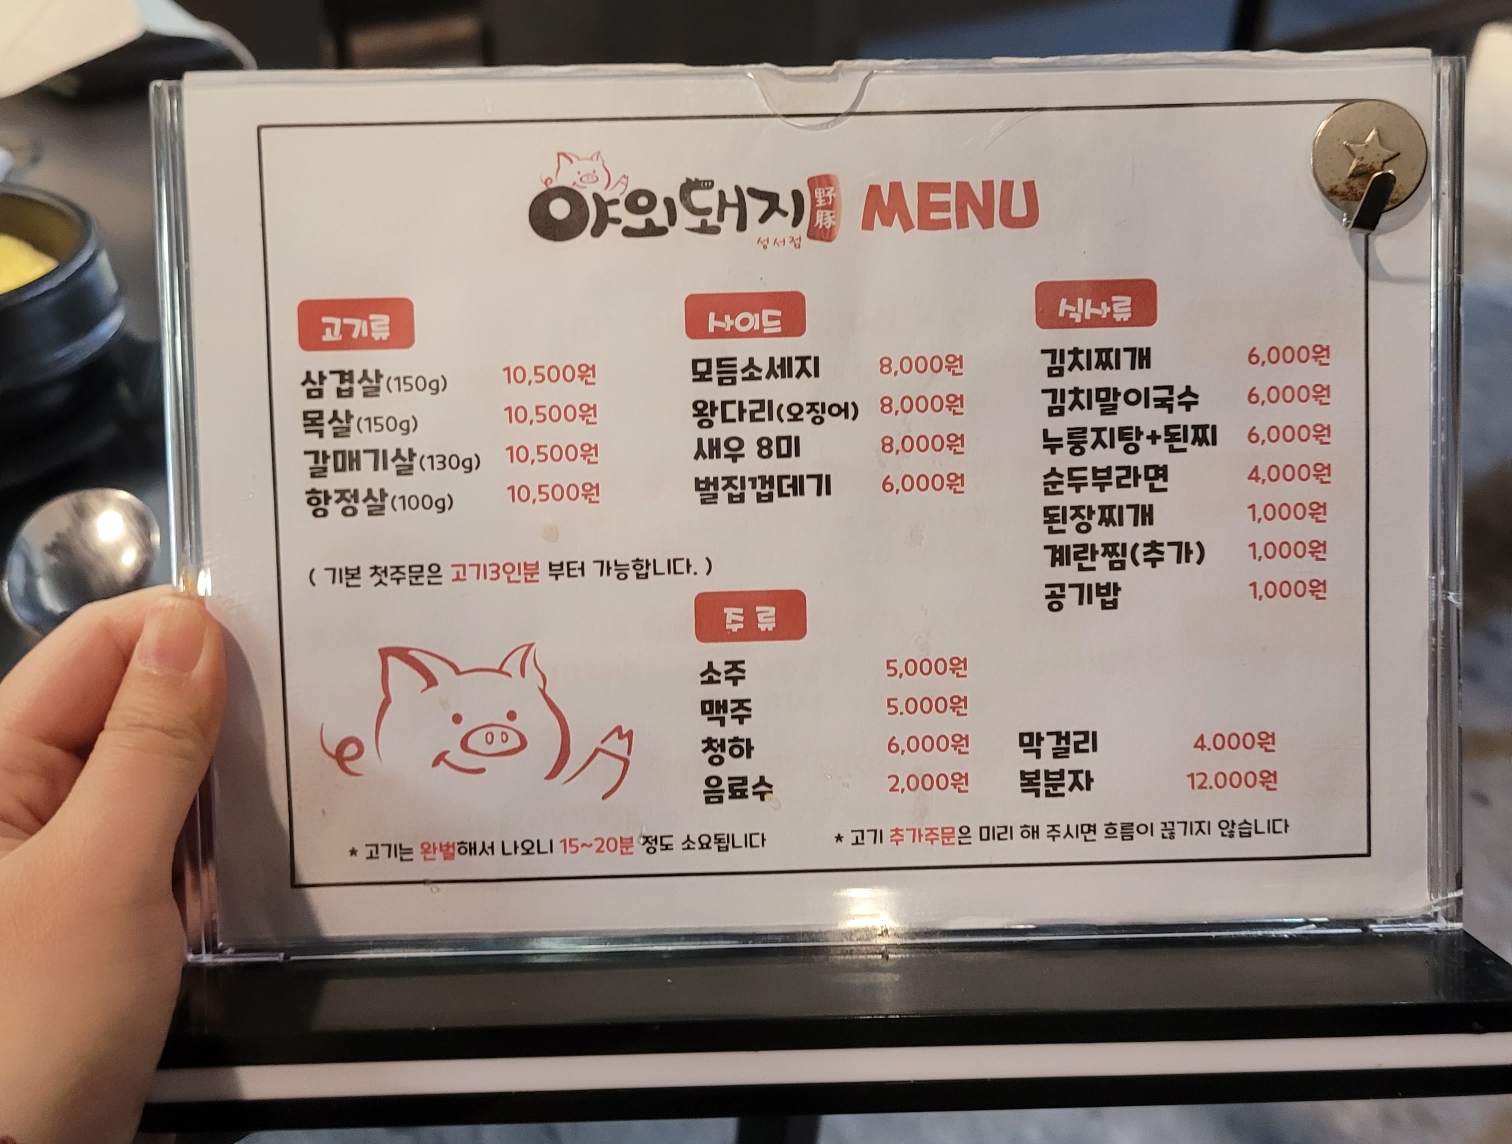 야외돼지 野豚 MENU
성서점
고기류
삼겹살(150g) 10,500원
목살(150g) 10,500원
갈매기살(130g) 10,500원
항정살(100g) 10,500원
( 기본 첫주문은 고기3인분 부터 가능합니다. )
사이드
모듬소세지 8,000원
왕다리(오징어) 8,000원
새우 8미 8,000원
벌집껍데기 6,000원
식사류
김치찌개 6,000원
김치말이국수 6,000원
누룽지탕+된찌 6,000원
순두부라면 4,000원
된장찌개 1,000원
계란찜(추가) 1,000원
공기밥 1,000원
주류
소주 5,000원
맥주 5.000원
청하 6,000원
음료수 2,000원
막걸리 4.000원
복분자 12.000원
* 고기는 완벌해서 나오니 15~20분 정도 소요됩니다
* 고기 추가주문은 미리 해 주시면 흐름이 끊기지 않습니다